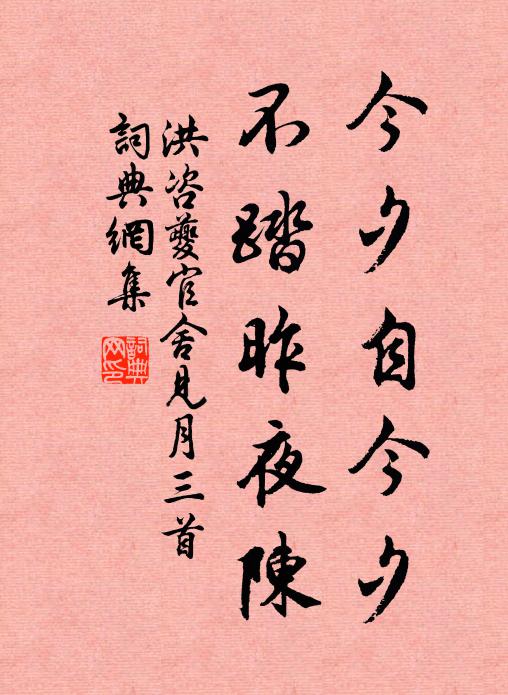 今夕自今夕
不踏昨夜陳
洪咨夔官舍見月三首
詞典網集
詞典網印